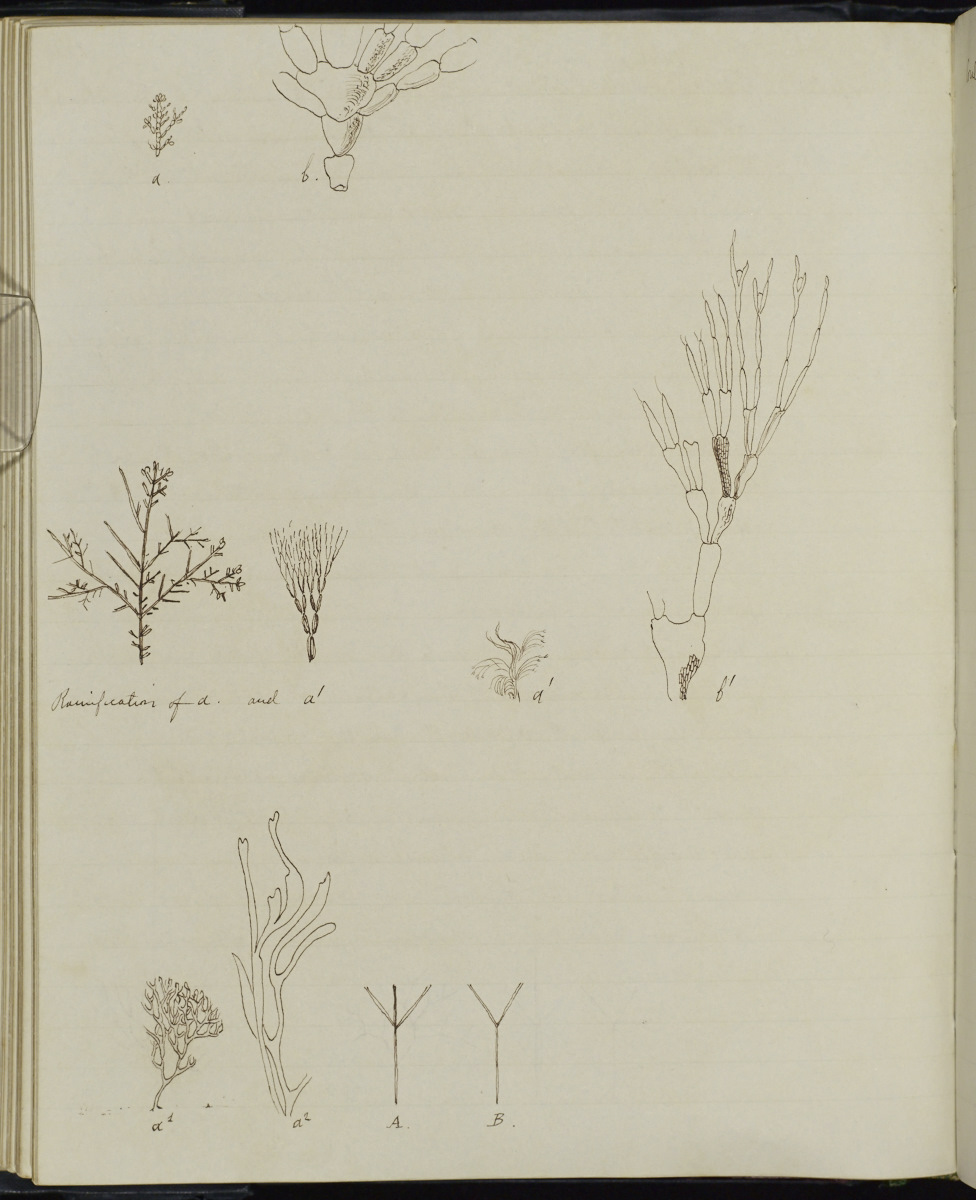 a.
b.
Ramification of a. and a'
a'
b'
a¹
a²
A.
B.